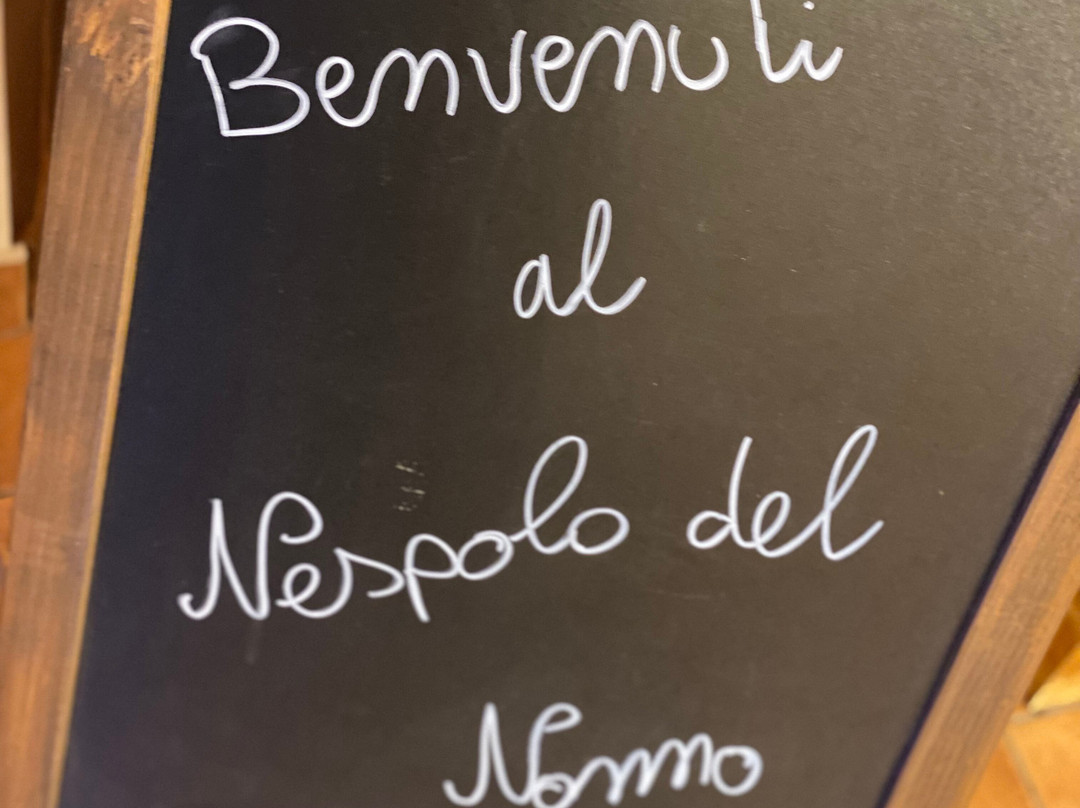 Benvenuti
al
Nespolo del
Nonno